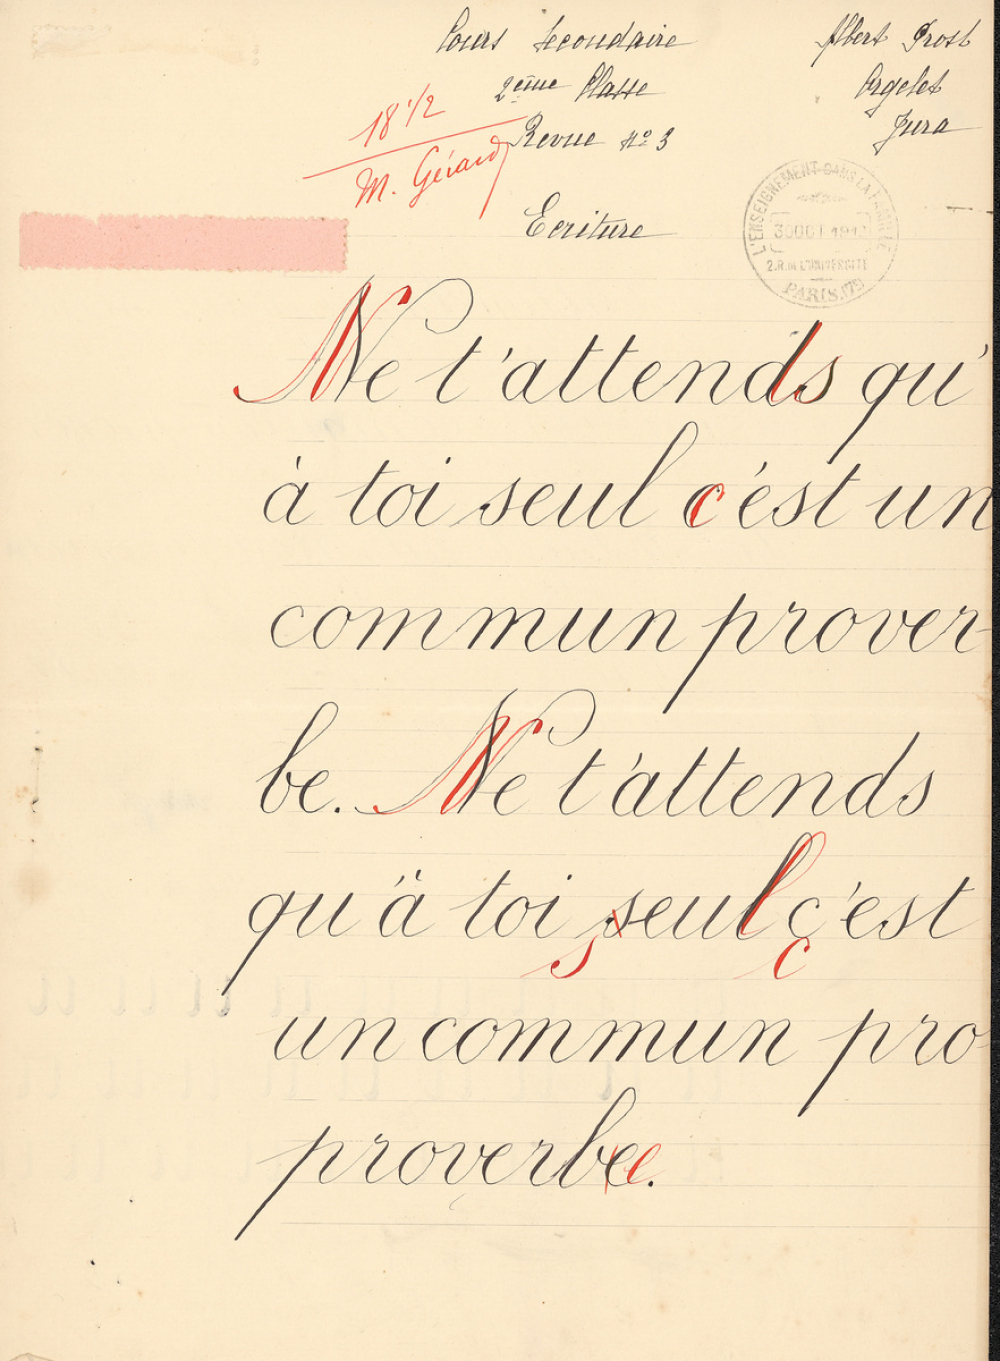 Cours Secondaire
Albert Prost
2ème Classe
Orgelet
18 1/2
Revue Nº 3
Jura
M. Gérard
Ecriture
L'ENSEIGNEMENT DANS LA FAMILLE
2.R. DE L'UNIVERSITÉ
PARIS
Ne t'attends qu'
à toi seul c'est un
commun prover-
be. Ne t'attends
qu'à toi seul c'est
s c
un commun pro
proverbe e.